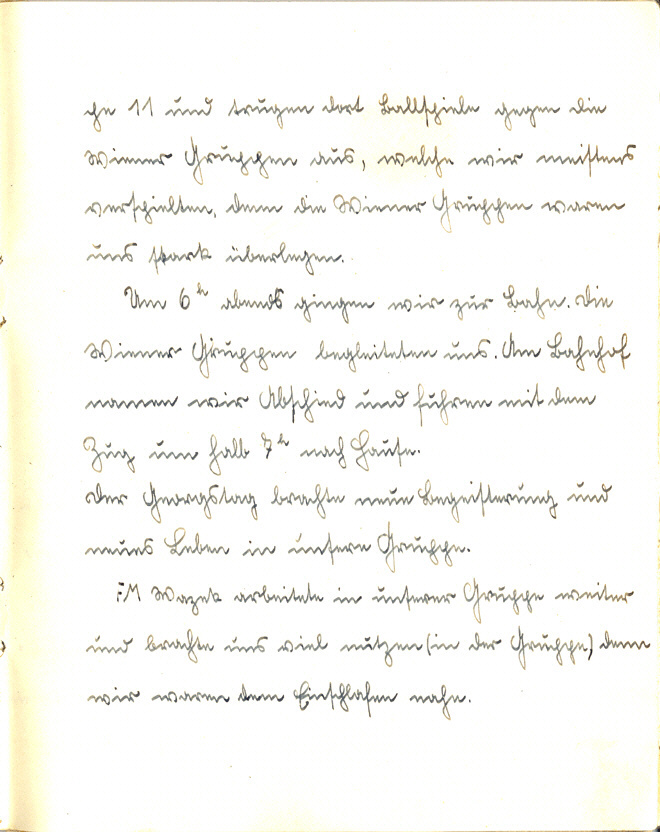 che 11 und trugen dort Ballspiele gegen die
Wiener Gruppen aus, welche wir meistens
verspielten, denn die Wiener Gruppen waren
uns stark überlegen.
Um 6ʰ abends gingen wir zur Bahn. Die
Wiener Gruppen begleiteten uns. Am Bahnhof
namen wir Abschied und fuhren mit dem
Zug um halb 7ʰ nach Hause.
Der Georgstag brachte neue Begeisterung und
neues Leben in unsere Gruppe.
FM Wazek arbeitete in unserer Gruppe weiter
und brachte uns viel nutzen (in der Gruppe) denn
wir waren dem Einschlafen nahe.